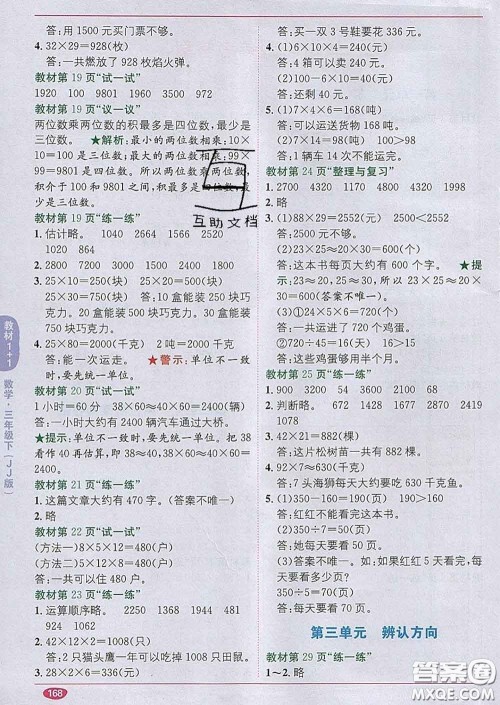 答:用 1500 元买门票不够。
4. 32×29=928(枚)
答:一共燃放了 928 枚焰火弹。
教材第 19 页“试一试”
1920 100 9801 1960 3500 972
教材第 19 页“议一议”
两位数乘两位数的积最多是四位数,最少是
三位数。 ★解析:最小的两位数相乘:10×
10=100 是三位数;最大的两位数相乘:99×
99=9801 是四位数。所以两位数乘两位数,
积介于 100 和 9801 之间,积最多是四位数,最
少是三位数。
教材第 19 页“练一练”
1. 估计略。 2040 2664 1568 1520
1020 864
2. 2800 7200 3000 1500 2400 1600
3. 25×10=250(块) 25×20=500(块)
25×30=750(块) 答:10 盒能装 250 块巧
克力。20 盒能装 500 块巧克力。30 盒能
装 750 块巧克力。
4. 25×80=2000(千克) 2 吨=2000 千克
答:能一次运走。 ★警示:单位不一致时,
要先统一单位。
教材第 20 页“试一试”
1 小时=60 分 38×60≈2400(辆)
答:一小时大约有 2400 辆汽车通过大桥。
★提示:单位不一致时,要先统一单位。把 38
看作 40 再估算,即 38≈40,38×60≈2400。
教材第 21 页“练一练”
1. 这篇文章大约有 470 字。(答案不唯一)
2. 略
教材第 22 页“试一试”
(方法一)8×5×12=480(户)
(方法二)5×12×8=480(户)
答:一共可以住 480 户。
教材第 23 页“练一练”
1. 运算顺序略。 2700 1980 4320 4200
924 1062
2. 2×12×42=1008(只)
答:2 只猫头鹰一年可吃掉 1008 只田鼠。
3. 28×2×6=336(元)
答:买一双 3 号鞋要花 336 元。
4. (1)6×10×4=240(元)
答:4 箱可以卖 240 元。
(2)答:还剩 40 元。
5. (1)2×6×14=168(吨)
答:可以运送货物 168 吨。
(2)答:1 辆车 14 次不能运完。
教材第 24 页“整理与复习”
1. 2700 4320 1170 4320 1998
2. 略
3. (1)88×29=2552(元) 2500<2552
答:2500 元不够。
(2)23×25≈20×30=600(个)
答:这本书每页大约有 600 个字。 ★提
示:23≈20,25≈30,所以 23×25≈20×
30=600(答案不唯一)。
(3)①24×5×6=720(个)
答:一共进了 720 个鸡蛋。
②720÷16=45(千克)
答:这些鸡蛋够用半个月。
教材第 25 页“练一练”
1. 900 3200 54 3600 2100 68
2. 判断略。 672 1428 1677 2870 2419
1840
3. 42×21=882(棵)
答:这片松树苗一共有 882 棵。
4. 92×7≈630(千克)
答:7 头海狮每天要吃 630 千克鱼。
5. (1)50×6=300(页) 350>300
答:红红不能看完这本书。
(2)350÷7=50(页)
答:她每天要看 50 页。
(3)答案不唯一。如:如果红红 5 天看完,每
天要看多少页?
350÷5=70(页)
答:每天要看 70 页。
第三单元 辨认方向
教材第 29 页“练一练”
1~2. 略
教材1+1
数学·三年级下(JJ版)
168
互助文档
答案圈
MXQE.COM